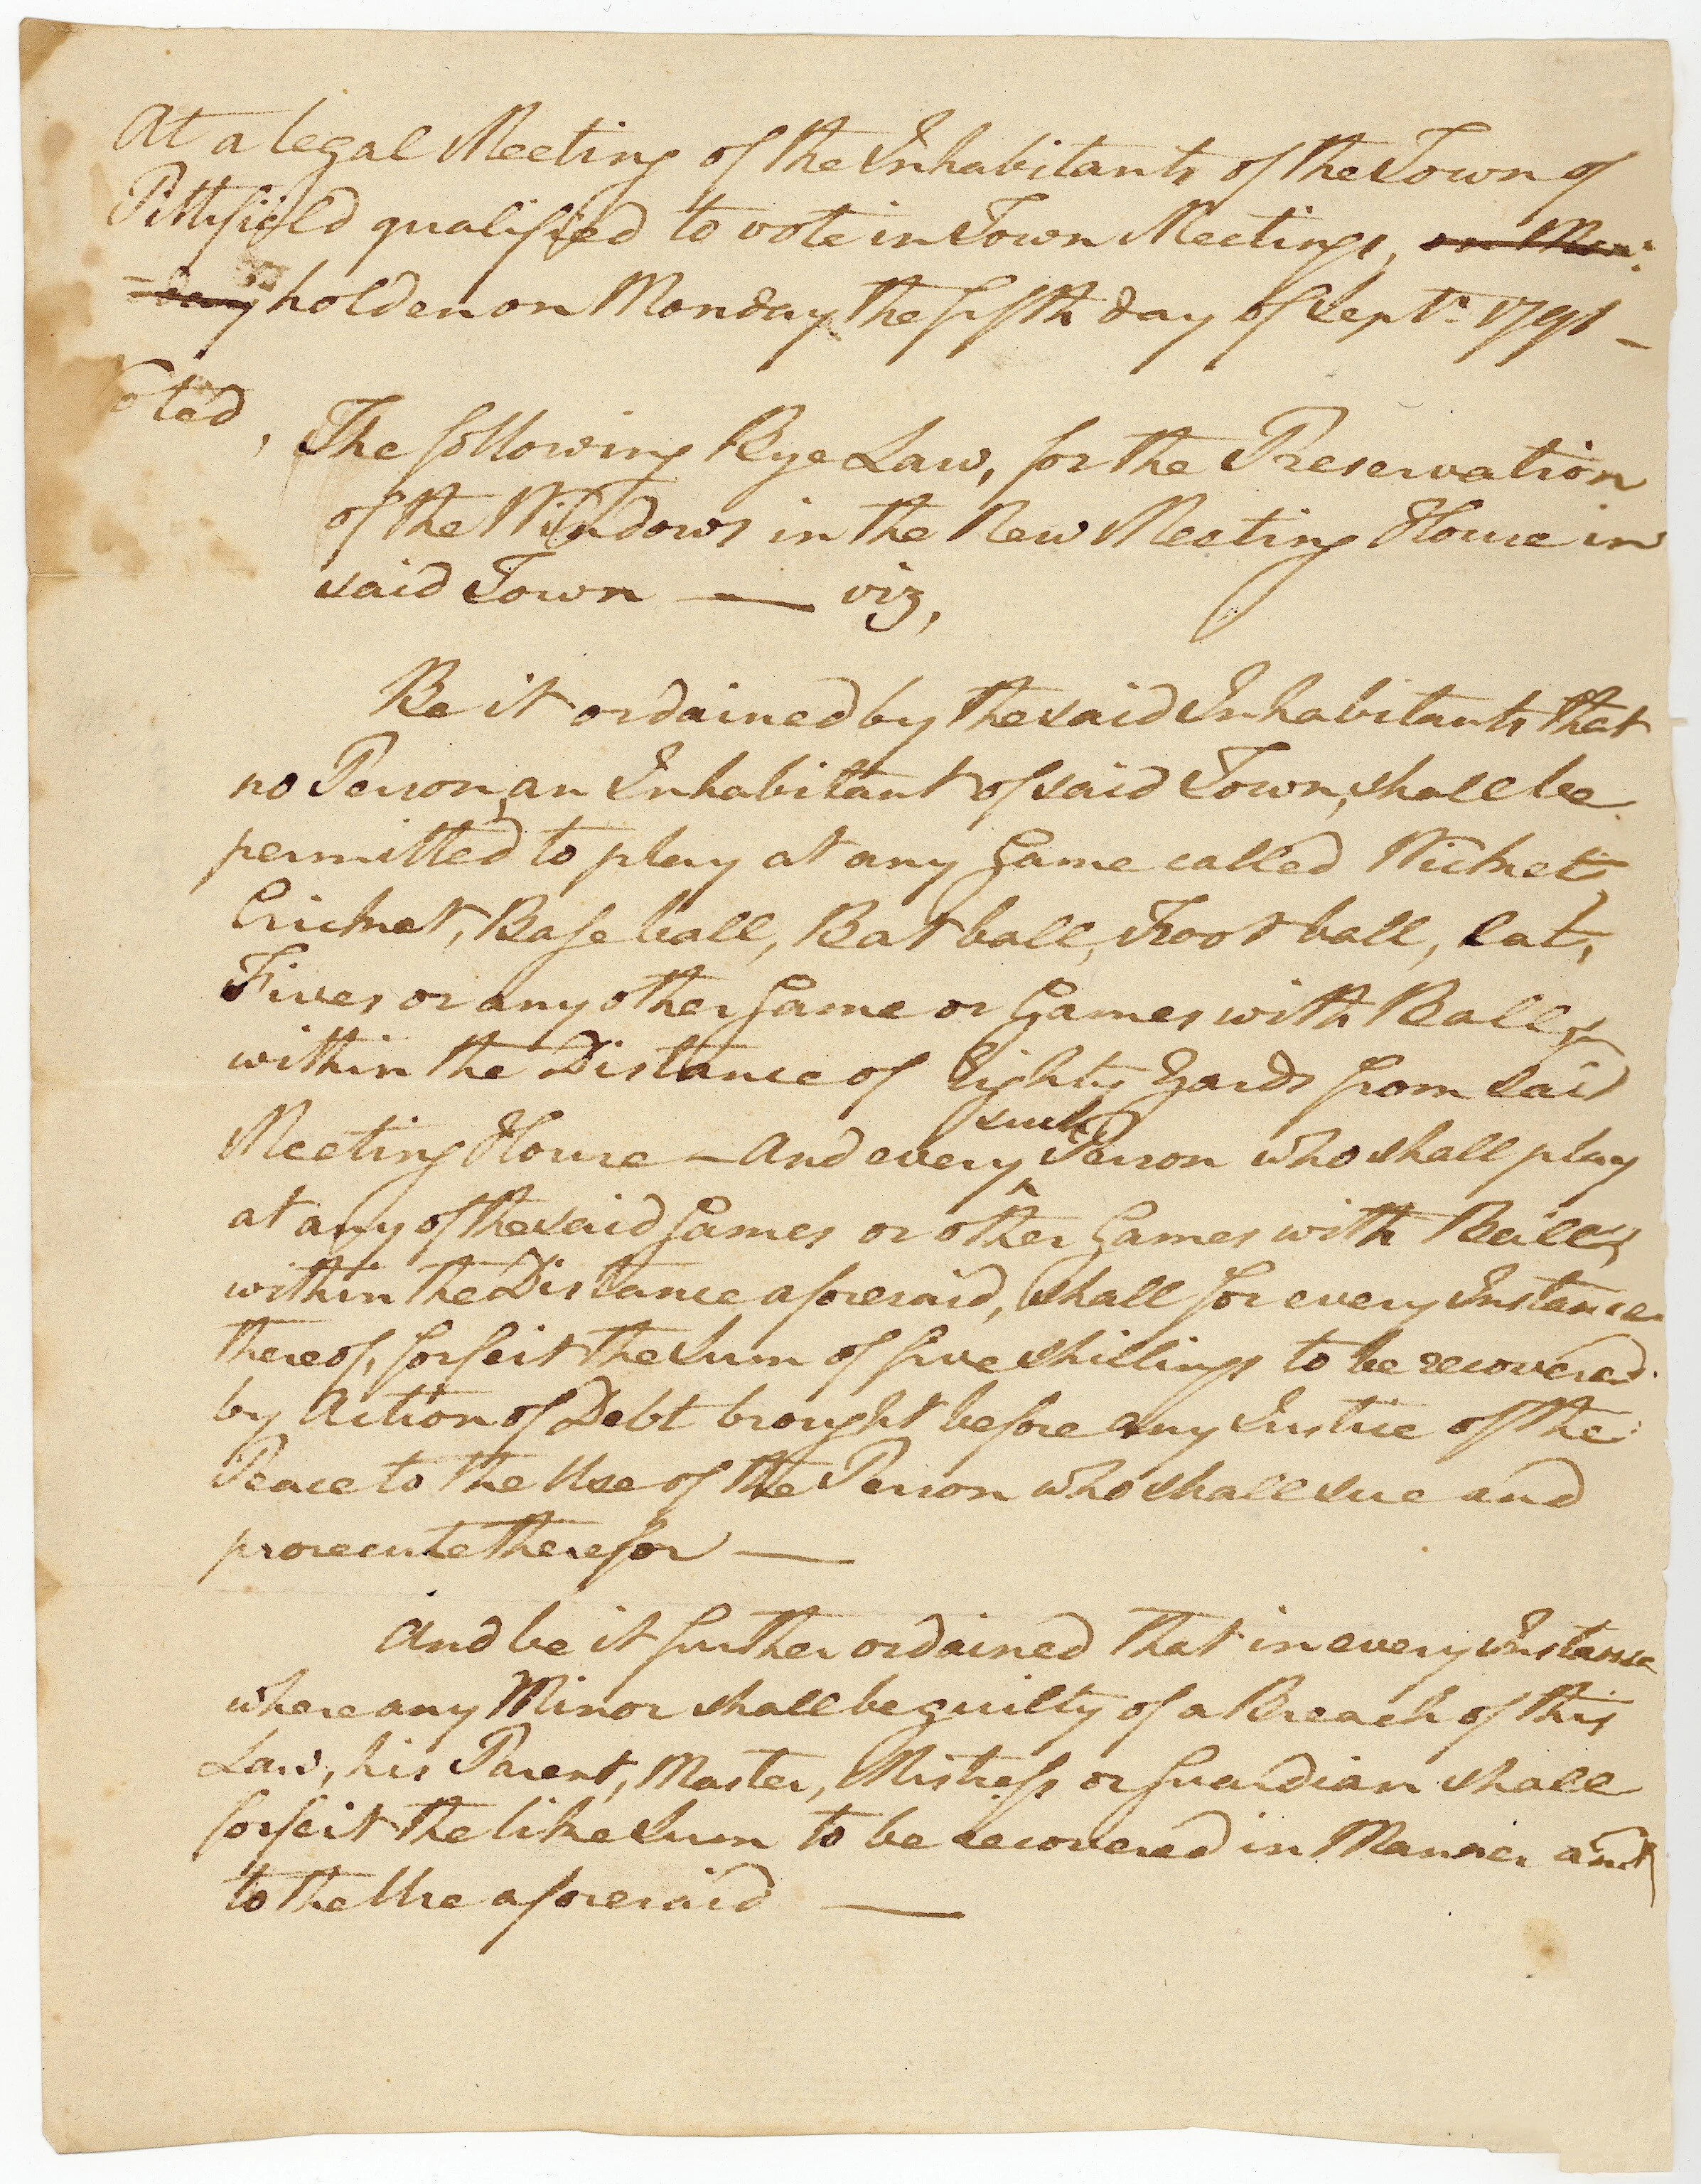 At a legal Meeting of the Inhabitants of the Town of
Pittsfield qualified to vote in Town Meetings, on Mon-
=day holden on Monday the fifth day of Septr. 1791 –
oted,
The following Bye Law, for the Preservation
of the Windows in the New Meeting House in
said Town — viz,
Be it ordained by the said Inhabitants that
no Person, an Inhabitant of said Town, shall be
permitted to play at any Game called Wicket,
Cricket, Base ball, Bat ball, Foot ball, Cat,
Fives or any other Game or Games with Balls
within the Distance of Eighty Yards from said
such
Meeting House – And every ^ Person who shall play
at any of the said Games or other Games with Balls
within the Distance aforesaid, shall for every Instance
thereof, forfeit the Sum of five shillings to be recovered
by Action of Debt brought before any Justice of the
Peace to the Use of the Person who shall sue and
prosecute therefor —
And be it further ordained that in every Instance
where any Minor shall be guilty of a Breach of this
Law, his Parent, Master, Mistress or Guardian shall
forfeit the like Sum to be recovered in Manner and
to the Use aforesaid —